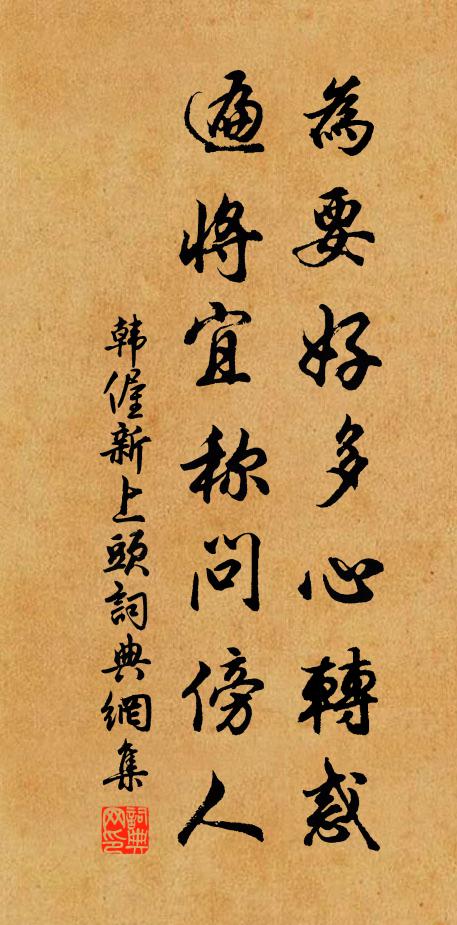 為要好多心轉惑
遍將宜称問傍人
韩偓新上頭詞典網集
詞典网印